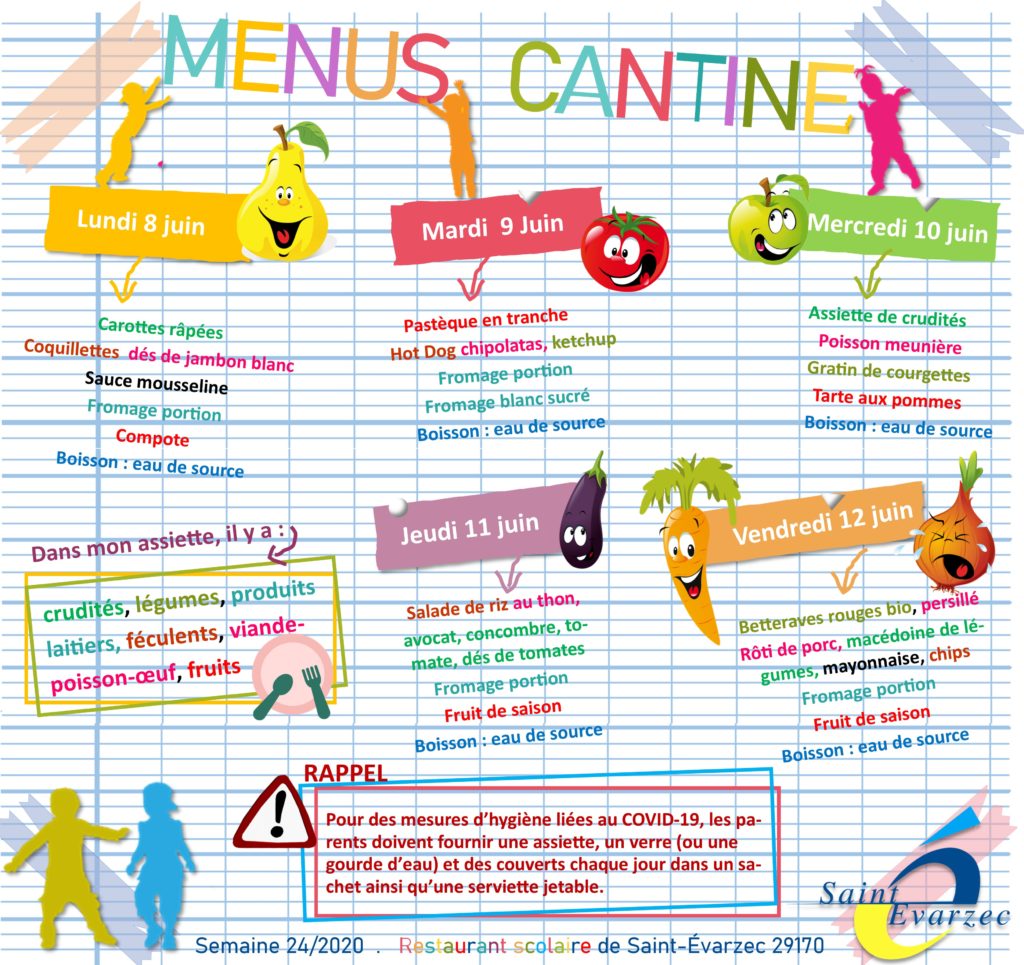 MENUS CANTINE
Lundi 8 juin
Carottes râpées
Coquillettes dés de jambon blanc
Sauce mousseline
Fromage portion
Compote
Boisson : eau de source
Mardi 9 Juin
Pastèque en tranche
Hot Dog chipolatas, ketchup
Fromage portion
Fromage blanc sucré
Boisson : eau de source
Mercredi 10 juin
Assiette de crudités
Poisson meunière
Gratin de courgettes
Tarte aux pommes
Boisson : eau de source
Dans mon assiette, il y a :
crudités, légumes, produits
laitiers, féculents, viande-
poisson-œuf, fruits
Jeudi 11 juin
Salade de riz au thon,
avocat, concombre, to-
mate, dés de tomates
Fromage portion
Fruit de saison
Boisson : eau de source
Vendredi 12 juin
Betteraves rouges bio, persillé
Rôti de porc, macédoine de lé-
gumes, mayonnaise, chips
Fromage portion
Fruit de saison
Boisson : eau de source
RAPPEL
Pour des mesures d'hygiène liées au COVID-19, les pa-
rents doivent fournir une assiette, un verre (ou une
gourde d'eau) et des couverts chaque jour dans un sa-
chet ainsi qu'une serviette jetable.
Saint
Evarzec
Semaine 24/2020 . Restaurant scolaire de Saint-Évarzec 29170